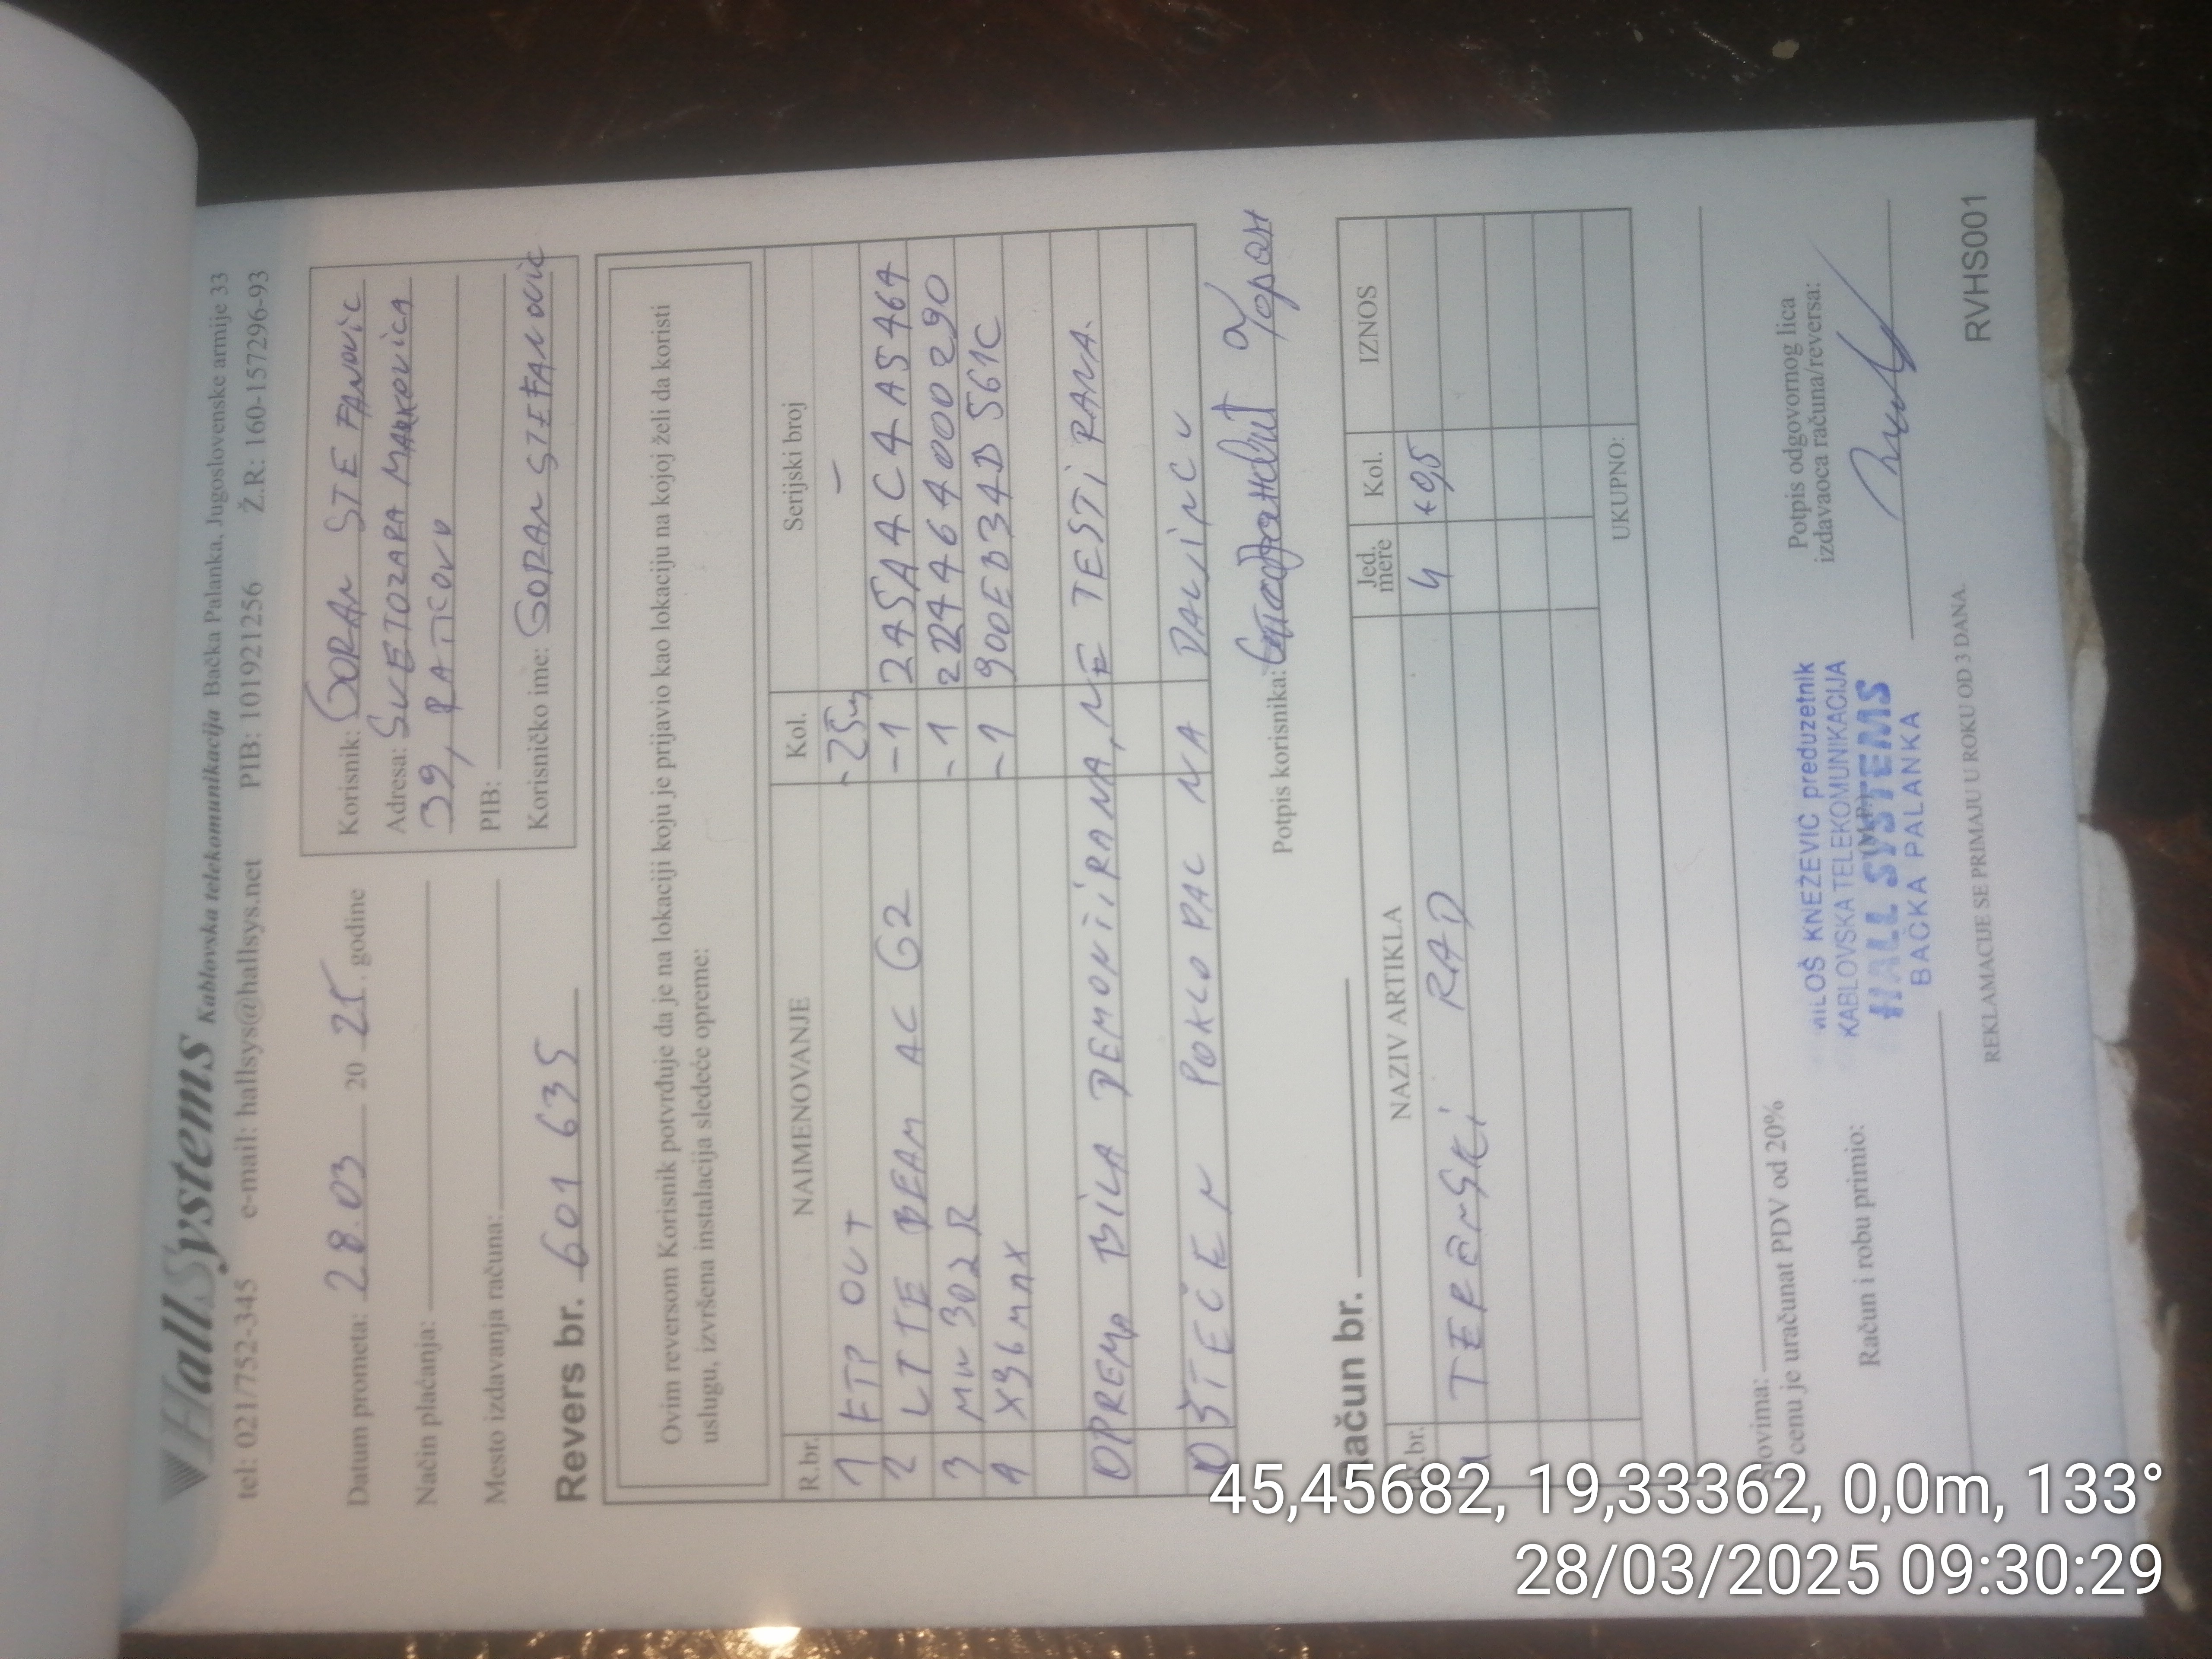 HallSystems Kablovska telekomunikacija Bačka Palanka, Jugoslovenske armije 33
tel: 021/752-345 e-mail: hallsys@hallsys.net PIB: 101921256 Ž.R: 160-157296-93
Datum prometa: 28.03 20 25. godine
Način plaćanja:
Mesto izdavanja računa:
Revers br. 601 635
Korisnik: GORAN STEFANOVIC
Adresa: SVETOZARA MARKOVICA
39, RATKOVO
PIB:
Korisničko ime: GORAN STEFANOVIC
Ovim reversom Korisnik potvrđuje da je na lokaciji koju je prijavio kao lokaciju na kojoj želi da koristi
uslugu, izvršena instalacija sledeće opreme:
R.br. NAIMENOVANJE Kol. Serijski broj
1 FTP OUT -25m -
2 LTTE BEAM AC G2 -1 245A4C4A5464
3 MW 302R -1 2224464000290
4 X96 MAX -1 900EB34D561C
OPREMA BILA DEMONTIRANA, NE TESTIRANA.
OŠTEĆEN POKLOPAC NA DALJINCU
Potpis korisnika: Стефановић Горан
Račun br.
R.br. NAZIV ARTIKLA Jed. mere Kol. IZNOS
1 TERENSKI RAD 4 +0,5
UKUPNO:
Slovima:
U cenu je uračunat PDV od 20%
Račun i robu primio:
MILOŠ KNEŽEVIĆ preduzetnik
KABLOVSKA TELEKOMUNIKACIJA
HALL SYSTEMS
BAČKA PALANKA
(M.P.)
Potpis odgovornog lica
izdavaoca računa/reversa:
REKLAMACIJE SE PRIMAJU U ROKU OD 3 DANA.
RVHS001
45,45682, 19,33362, 0,0m, 133°
28/03/2025 09:30:29